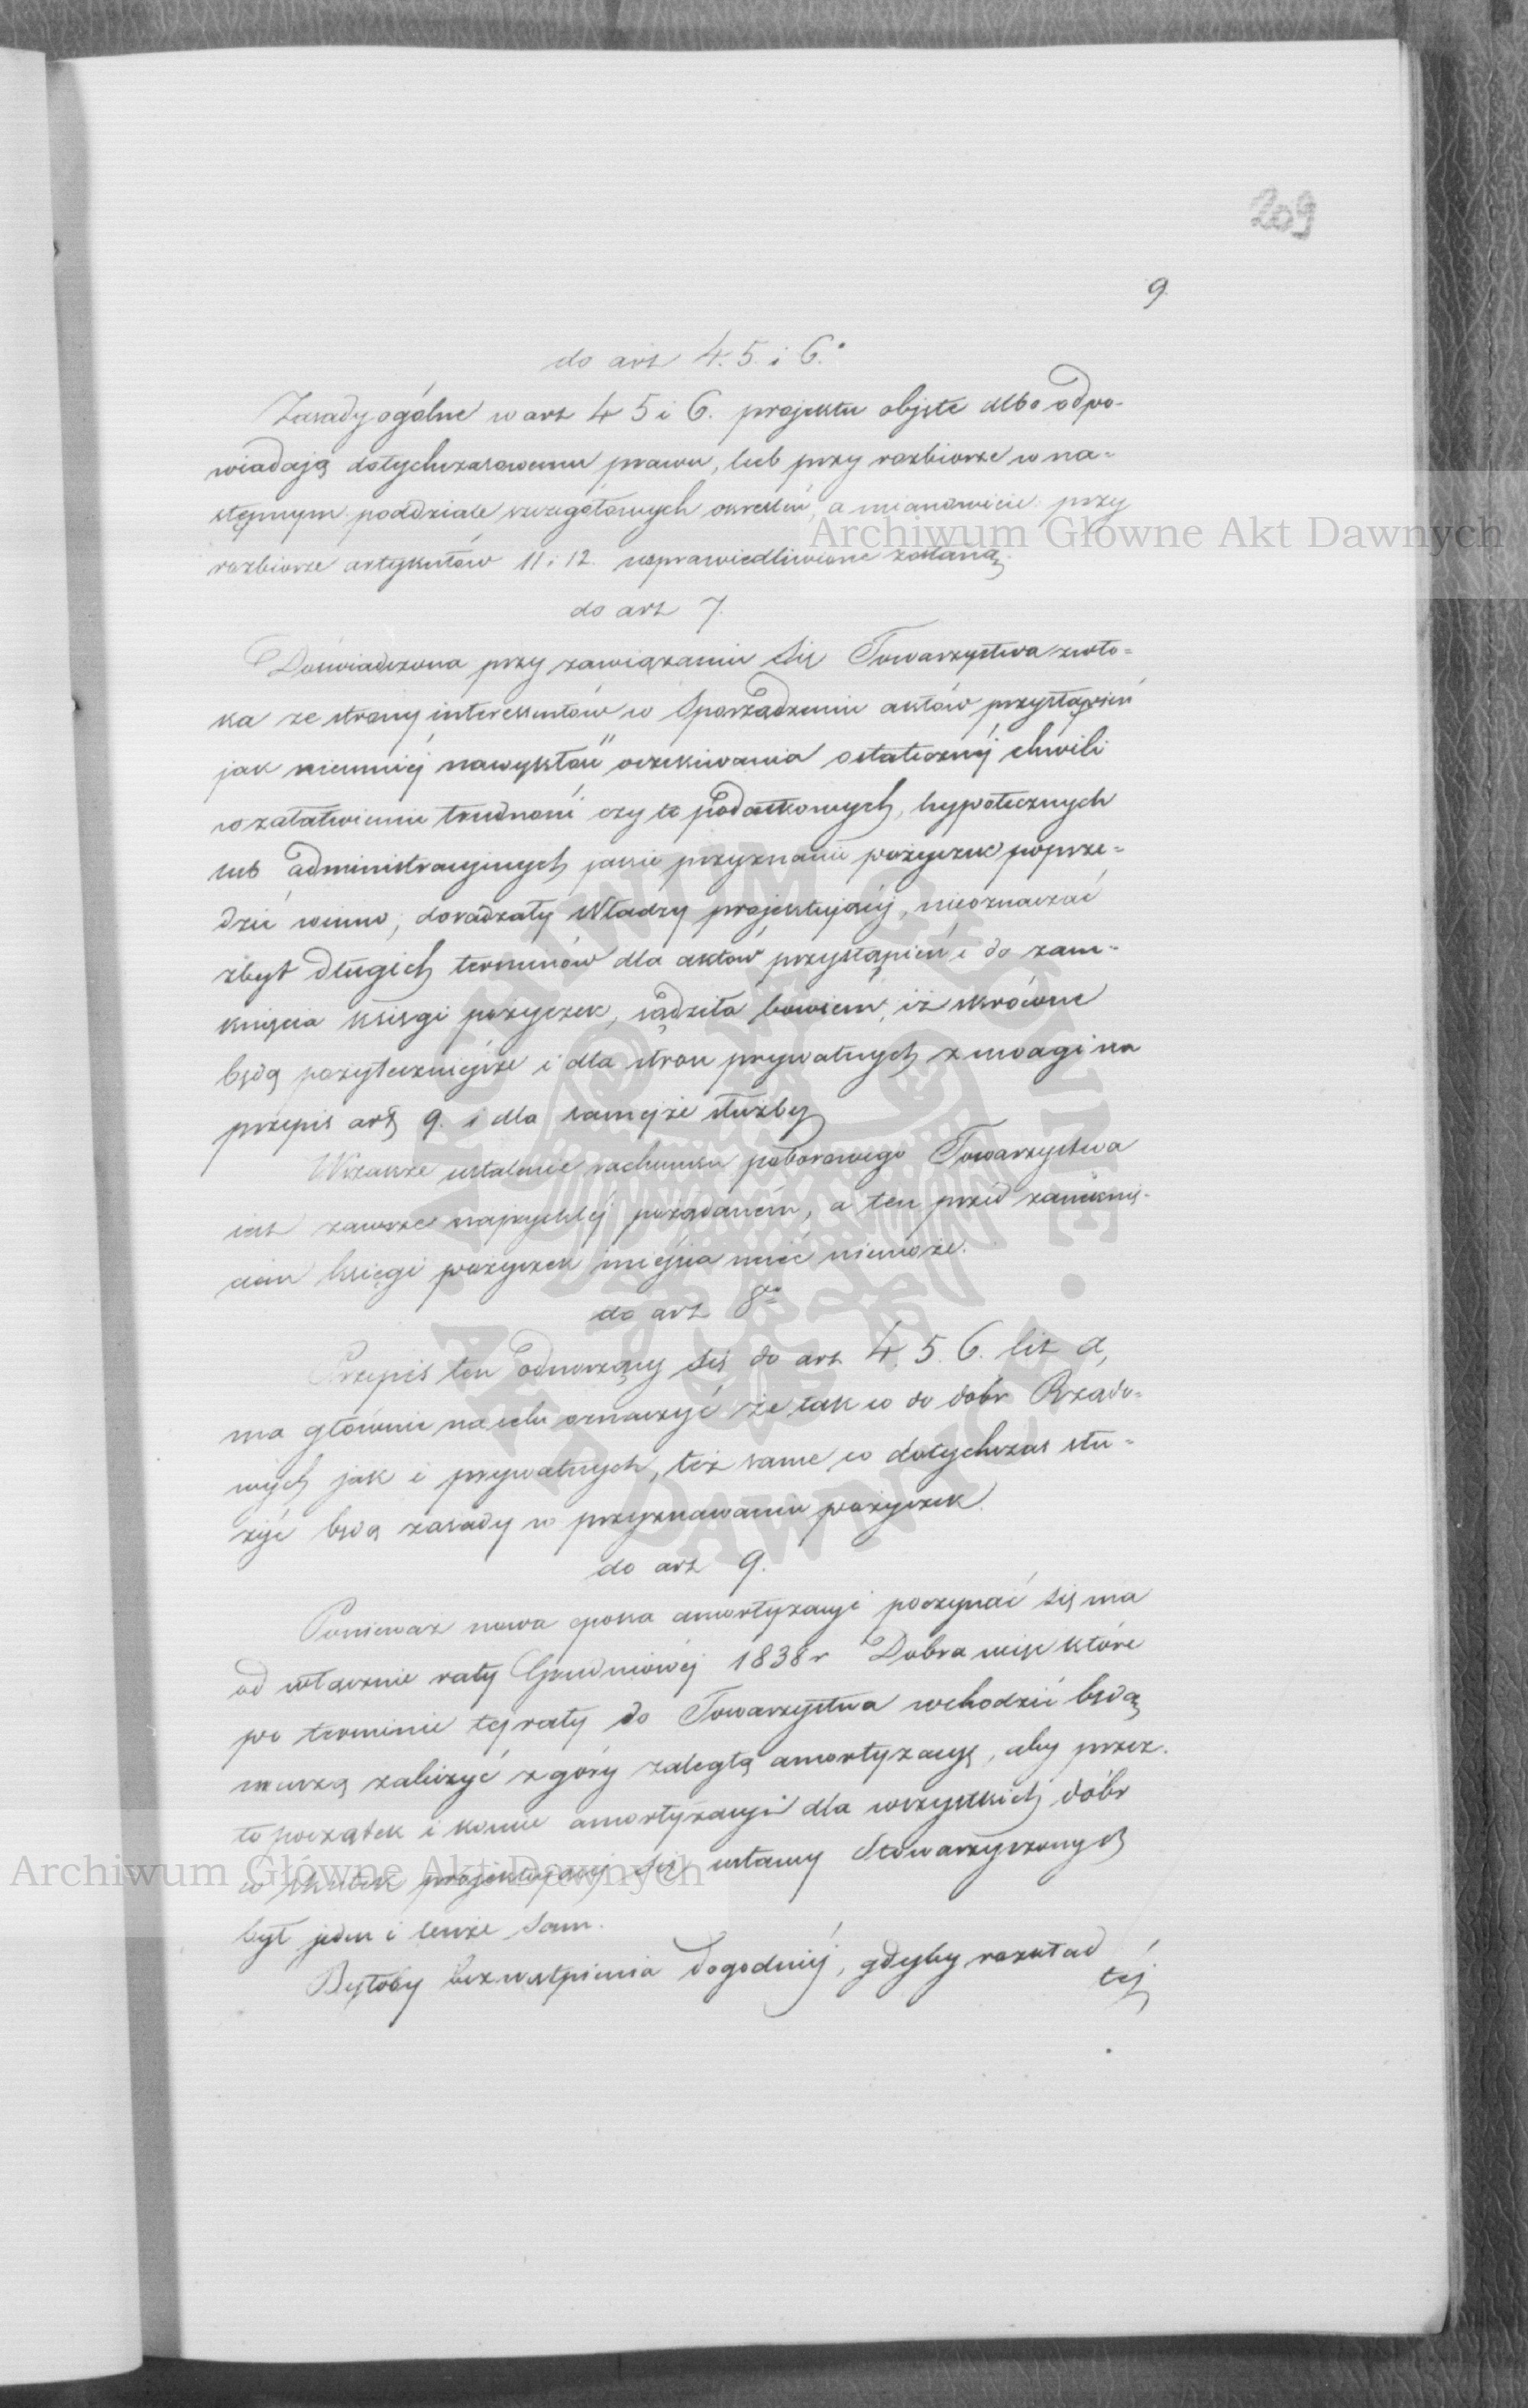 209
9
do art 4. 5. i 6.
Zasady ogólne w art 4 5 i 6. projektu objęte albo odpo-
wiadają dotychczasowemu prawu, lub przy rozbiorze w na-
stępnym poddziale szczegółowych określeń, a mianowicie przy
rozbiorze artykułów 11 i 12. usprawiedliwione zostaną.
do art 7.
Doświadczona przy zawiązaniu się Towarzystwa zwło-
ka ze strony interesentów w sporządzeniu aktów przystąpień
jak niemniéj oczekiwania ostatecznéj chwili
w załatwieniu trudności czy to podatkowych, hypotecznych
lub administracyjnych jakie przyznanie pożyczek poprze-
dzić winno, doradzały Władzy projektującéj, nieoznaczać
zbyt długich terminów dla aktów przystąpień i do zam-
knięcia księgi pożyczek, sądziła bowiem, iż skrócone
będą pożyteczniejsze i dla stron prywatnych z uwagi na
przepis art 9. i dla samejże służby
Wszakże ustalenie rachunku poborowego Towarzystwa
jest zawsze najrychléj pożądaném, a ten przed zamknię-
ciem księgi pożyczek miejsca mieć niemoże.
do art 8
Przepis ten odnoszący się do art 4. 5. 6. lit a,
ma głównie na celu oznaczyć że tak co do dóbr Rządo-
wych jak i prywatnych, też same co dotychczas słu-
żyć będą zasady w przyznawaniu pożyczek.
do art 9.
Ponieważ nowa epoka amortyzacyi poczynać się ma
od włącznie raty Grudniowéj 1838 r Dobra więc które
po terminie téj raty do Towarzystwa wchodzić będą
muszą zaliczyć z góry zaległą amortyzacyę, aby przez
to początek i koniec amortyzacyi dla wszystkich dóbr
w skutek projektującéj się ustawy Stowarzyszonych
był jeden i tenże sam.
Byłoby bezwątpienia dogodniéj, gdyby rozkład
téj
Archiwum Główne Akt Dawnych
Archiwum Główne Akt Dawnych
ARCHIWUM GŁÓWNE
AKT DAWNYCH